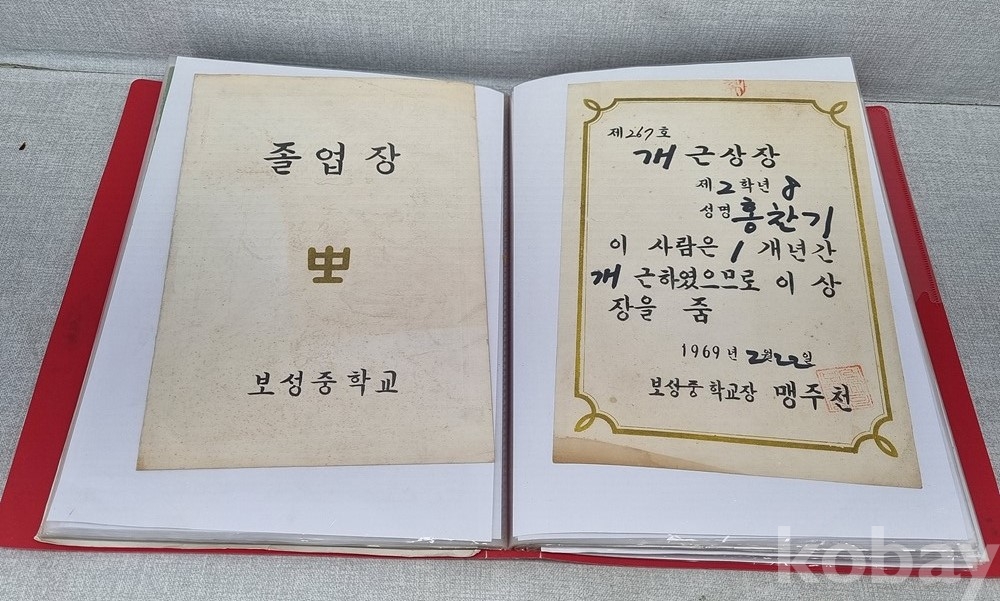 졸업장
보성중학교
제267호
개근상장
제2학년 8
성명 홍찬기
이 사람은 1 개년간
개근하였으므로 이 상
장을 줌
1969년 2월 22일
보성중학교장 맹주천
kobay